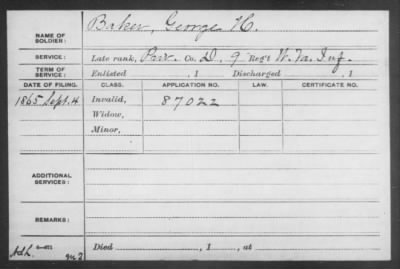 Baker, George H.
NAME OF
SOLDIER:
SERVICE: Late rank, Priv. Co. D, 9 Reg't W. Va. Inf.
TERM OF
SERVICE: Enlisted , 1 Discharged , 1
DATE OF FILING. CLASS. APPLICATION NO. LAW. CERTIFICATE NO.
1865 Sept. 4 Invalid, 87022
Widow,
Minor,
ADDITIONAL
SERVICES:
REMARKS:
Died , 1 , at